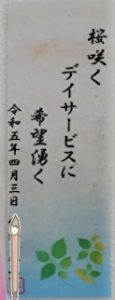 桜咲く
デイサービスに
希望湧く
令和五年四月三日